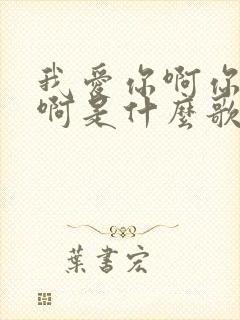 我愛你啊你
啊是什麼歌
葉書宏